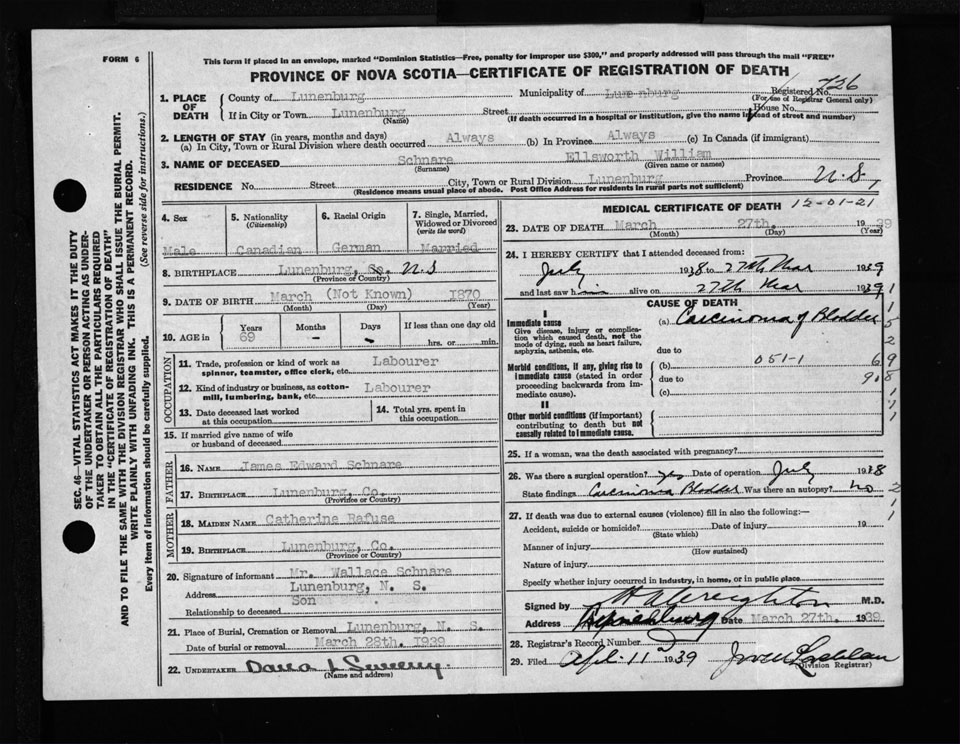 FORM 6
This form if placed in an envelope, marked "Dominion Statistics—Free, penalty for improper use $300," and properly addressed will pass through the mail "FREE"
PROVINCE OF NOVA SCOTIA—CERTIFICATE OF REGISTRATION OF DEATH
726
1. PLACE OF DEATH County of Lunenburg Municipality of Lunenburg Registered No.
(For use of Registrar General only)
If in City or Town Lunenburg Street House No.
(Name) (If death occurred in a hospital or institution, give the name instead of street and number)
2. LENGTH OF STAY (in years, months and days)
(a) In City, Town or Rural Division where death occurred Always (b) In Province Always (c) In Canada (if immigrant)
3. NAME OF DECEASED Schnare Ellsworth William
(Surname) (Given name or names)
RESIDENCE No. Street City, Town or Rural Division Lunenburg Province N.S,
(Residence means usual place of abode. Post Office Address for residents in rural parts not sufficient)
4. Sex Male
5. Nationality (Citizenship) Canadian
6. Racial Origin German
7. Single, Married, Widowed or Divorced (write the word) Married
8. BIRTHPLACE Lunenburg, Co. N.S
(Province or Country)
9. DATE OF BIRTH March (Not Known) 1870
(Month) (Day) (Year)
10. AGE in Years 69 Months - Days - If less than one day hrs. or min.
OCCUPATION
11. Trade, profession or kind of work as spinner, teamster, office clerk, etc. Labourer
12. Kind of industry or business, as cotton-mill, lumbering, bank, etc. Labourer
13. Date deceased last worked at this occupation
14. Total yrs. spent in this occupation
15. If married give name of wife or husband of deceased
FATHER
16. NAME James Edward Schnare
17. BIRTHPLACE Lunenburg, Co.
(Province or Country)
MOTHER
18. MAIDEN NAME Catherine Rafuse
19. BIRTHPLACE Lunenburg, Co.
(Province or Country)
20. Signature of informant Mr. Wallace Schnare
Address Lunenburg, N. S.
Relationship to deceased Son
21. Place of Burial, Cremation or Removal Lunenburg, N. S.
Date of burial or removal March 28th. 1939
22. UNDERTAKER
(Name and address)
MEDICAL CERTIFICATE OF DEATH 12-01-21
23. DATE OF DEATH March 27th. 1939
(Month) (Day) (Year)
24. I HEREBY CERTIFY that I attended deceased from:
July 1938 to 27th Mar 1939
and last saw him alive on 27th Mar 1939
CAUSE OF DEATH
I
Immediate cause (a) Carcinoma of Bladder
Give disease, injury or complication which caused death, not the mode of dying, such as heart failure, asphyxia, asthenia, etc.
due to
Morbid conditions, if any, giving rise to immediate cause (stated in order proceeding backwards from immediate cause). (b) 051-1
due to
(c)
II
Other morbid conditions (if important) contributing to death but not causally related to immediate cause.
25. If a woman, was the death associated with pregnancy?
26. Was there a surgical operation? yes Date of operation July 1938
State findings Carcinoma Bladder Was there an autopsy? no
27. If death was due to external causes (violence) fill in also the following:—
Accident, suicide or homicide? Date of injury 19
(State which)
Manner of injury
(How sustained)
Nature of injury
Specify whether injury occurred in industry, in home, or in public place
Signed by Creighton M.D.
Address Lunenburg Date March 27th. 1939
28. Registrar's Record Number
29. Filed Apl. 11 1939
(Division Registrar)
SEC. 46—VITAL STATISTICS ACT MAKES IT THE DUTY
OF THE UNDERTAKER OR PERSON ACTING AS UNDER-
TAKER TO OBTAIN ALL THE PARTICULARS REQUIRED
IN THE "CERTIFICATE OF REGISTRATION OF DEATH"
AND TO FILE THE SAME WITH THE DIVISION REGISTRAR WHO SHALL ISSUE THE BURIAL PERMIT.
WRITE PLAINLY WITH UNFADING INK. THIS IS A PERMANENT RECORD.
Every item of information should be carefully supplied. (See reverse side for instructions.)